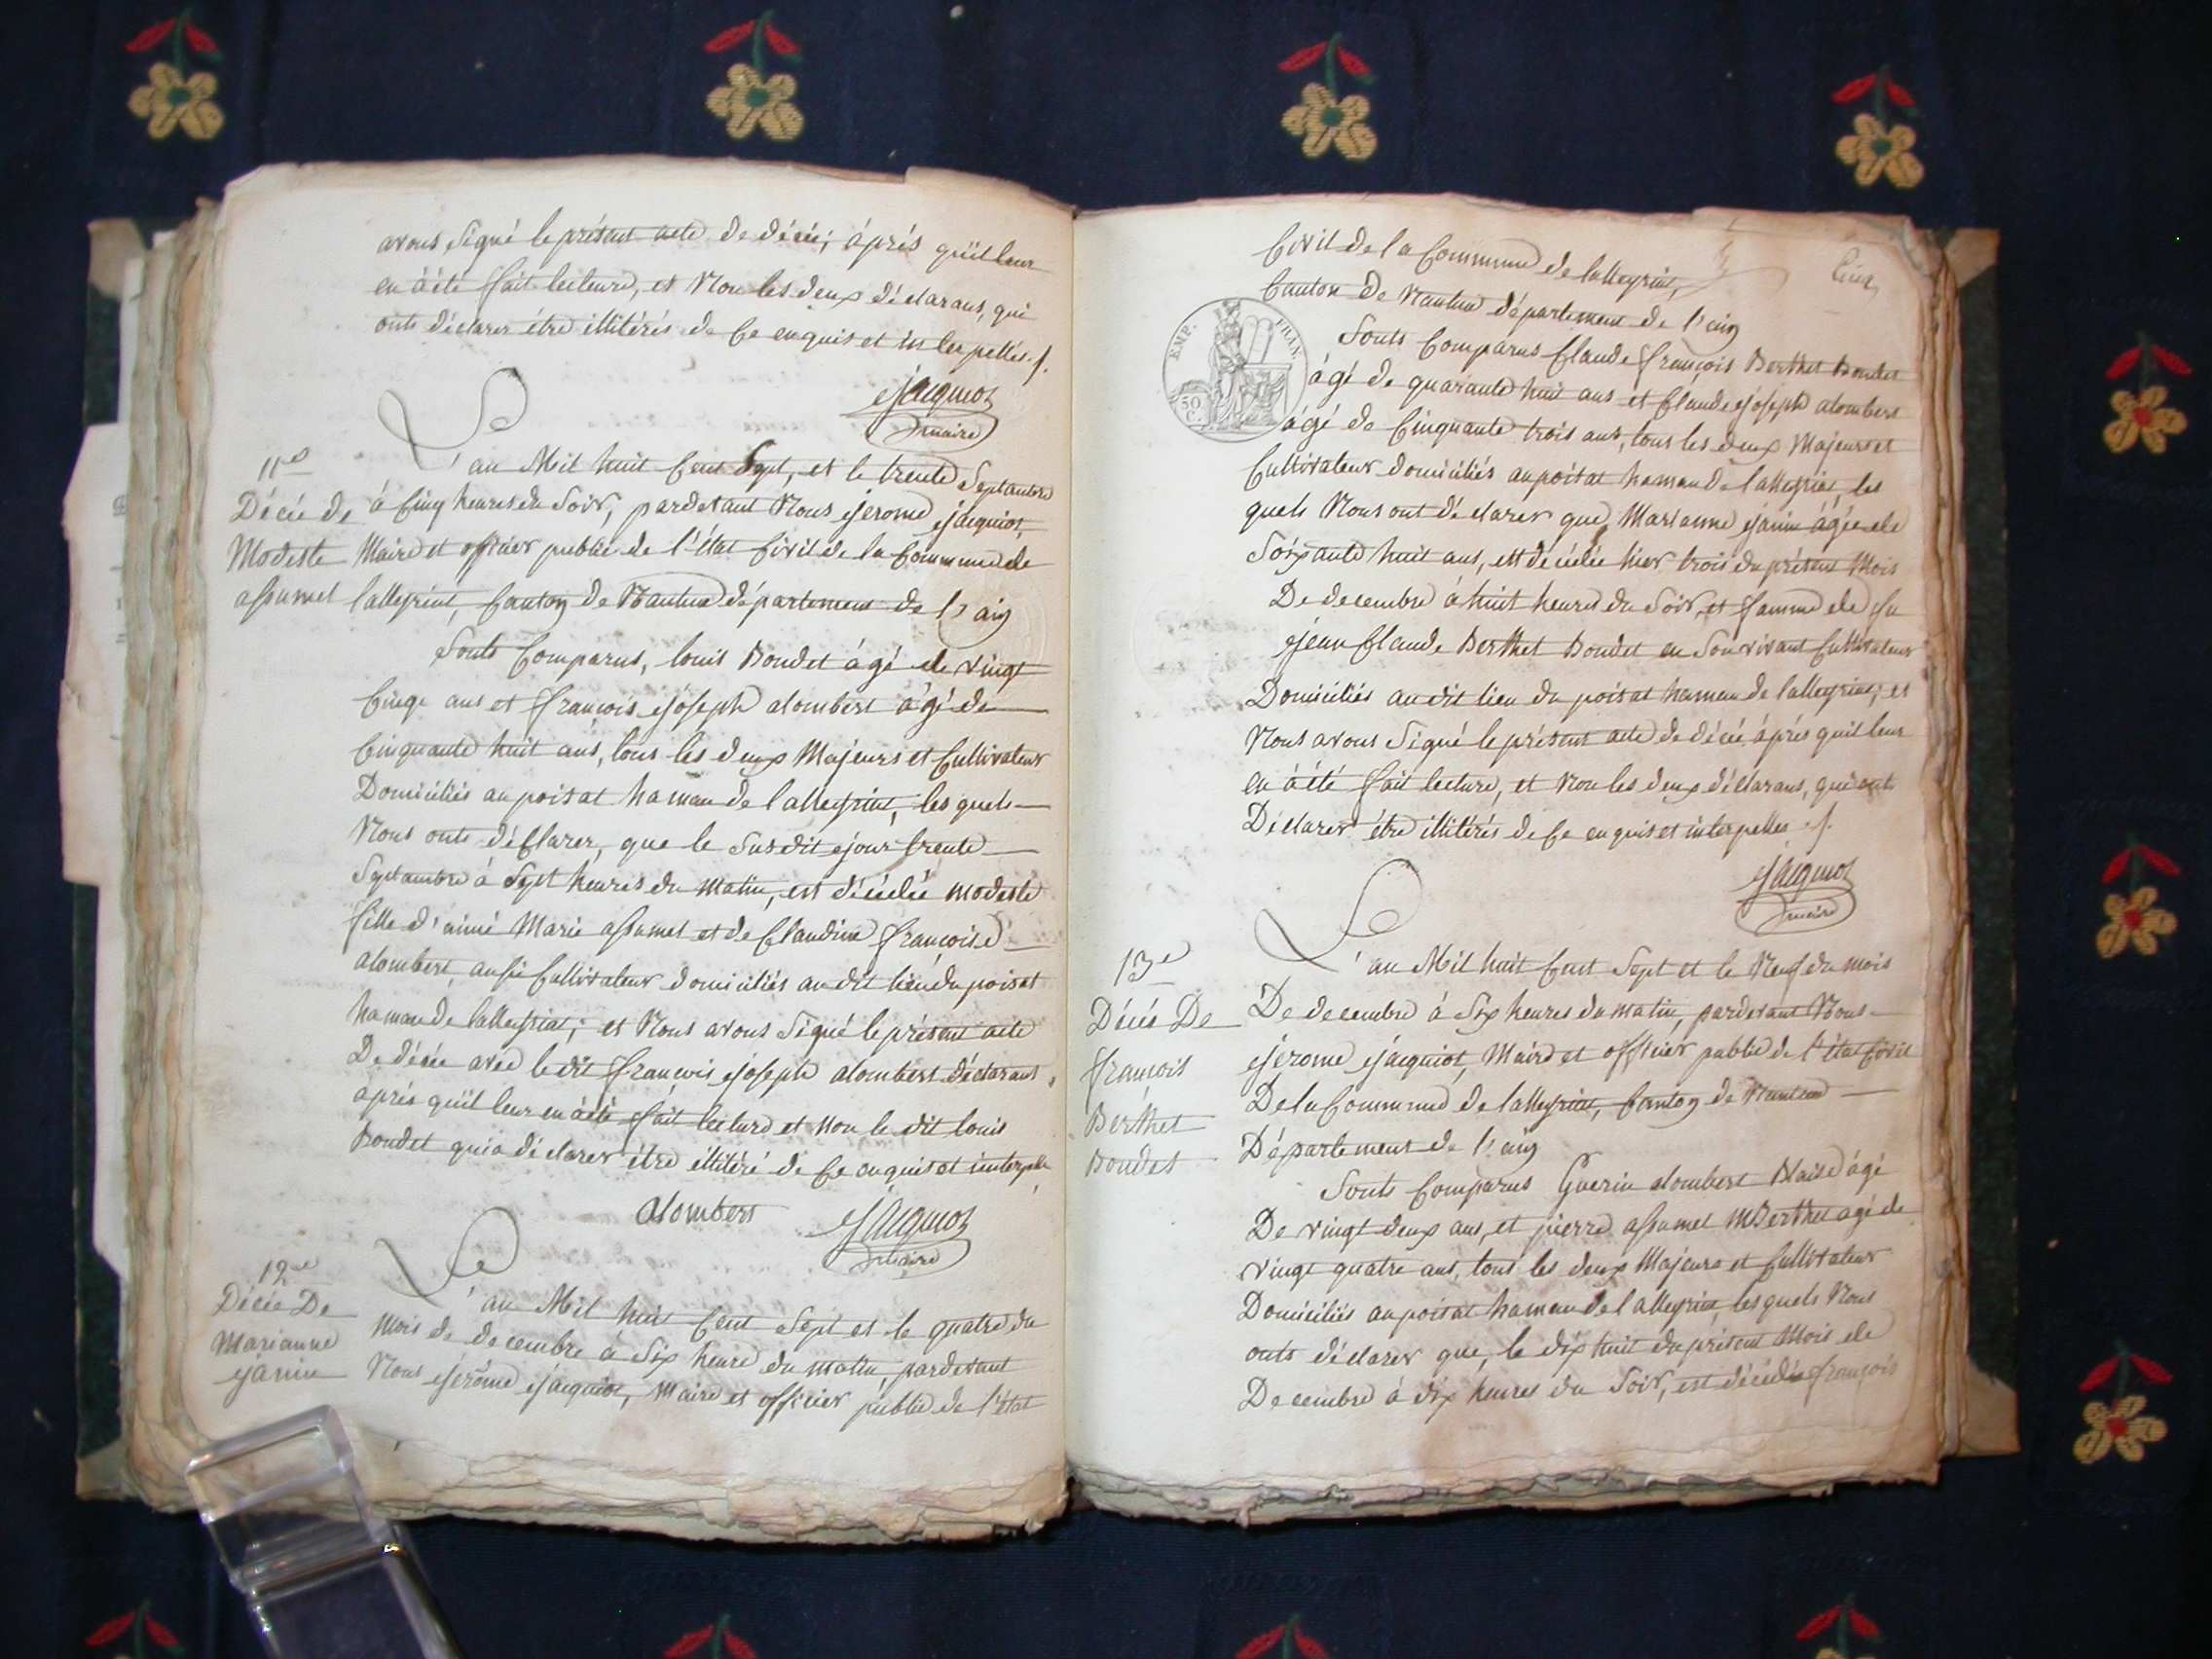 avons Signé le présent acte de décée; áprés qüil leur
en áété fait lecture, et Non les deux déclarans, qui
onts déclarer étre illitérés de Ce enquis et interpellés ./.
Jacquiot
maire
11e
Décée de
Modeste
assumel
L'an Mil huit Cent Sept, et le trente Septambre
á Cinq heures du Soir, pardevant Nous Jerome Jacquiot,
Maire et officier public de l'état Civil de la Commune de
lalleyriat, Canton de Nantua département de l'ain
Sonts Comparus, louis Boudet ágé de vingt
Cinq ans et françois Joseph alombert ágé de
Cinquante huit ans, tous les deux Majeurs et Cultivateur
Domiciliés au poisat hamau de lalleyriat, les quels
Nous onts déClarer, que le Susdit Jour trente
Septambre á Sept heures du matin, est décédée modeste
fille d'aimé Marie assumel et de Claudine françoise
alombert, aussi Cultivateur domiciliés au dit lieu du poisat
hamau de lalleyriat; et Nous avons Signé le présent acte
De décée avec le dit françois Joseph alombert déclarant,
áprés qüil leur en áété fait lecture et non le dit louis
Boudet qui a déclarer étre illitéré de Ce enquis et interpellé
alombert
Jacquiot
maire
12e
Décée De
Marianne
Janin
L'an Mil huit Cent Sept et le quatre du
Mois de decembre á Six heure du matin, pardevant
Nous Jerôme Jacquiot, Maire et officier public de l'état
Cinq
Civil de la Commune de lalleyriat,
Canton de Nantua département de l'ain
EMP. FRAN.
50 C.
Sonts Comparus Claude françois Berthet Boudet
ágé de quarante huit ans et Claude Joseph alombert
ágé de Cinquante trois ans, tous les deux Majeurs et
Cultivateur domiciliés au poisat hamau de lalleyriat, les
quels Nous ont déclarer que, Marianne Janin ágée de
Soixante huit ans, est décédée hier trois du présent Mois
De decembre á huit heures du Soir, et famme de fu
Jean Claude Berthet Boudet en Son vivant Cultivateur
Domiciliés au dit lieu du poisat hamau de lalleyriat; et
Nous avons Signé le présent acte de décée áprés quil leur
en áété fait lecture, et Non les deux déclarans, qui ont
Déclarer étre illitérés de Ce enquis et interpelles ./.
Jacquiot
maire
13e
Décés De
françois
Berthet
Boudet
L'an Mil huit Cent Sept et le Neuf du mois
De decembre á Six heures du matin, pardevant Nous
Jerome Jacquiot, Maire et officier public de l'état Civil
De la Commune de lalleyriat, Canton de Nantua
Département de l'ain
Sonts Comparus Guerin alombert Blaise ágé
De vingt deux ans, et pierre assumel mBerthet agé de
vingt quatre ans, tous les deux Majeurs et Cultivateur
Domiciliés au poisat hamau de lalleyriat, les quels Nous
onts déclarer que, le dix huit du présent Mois de
Decembre á dix heures du Soir, est décédée françois